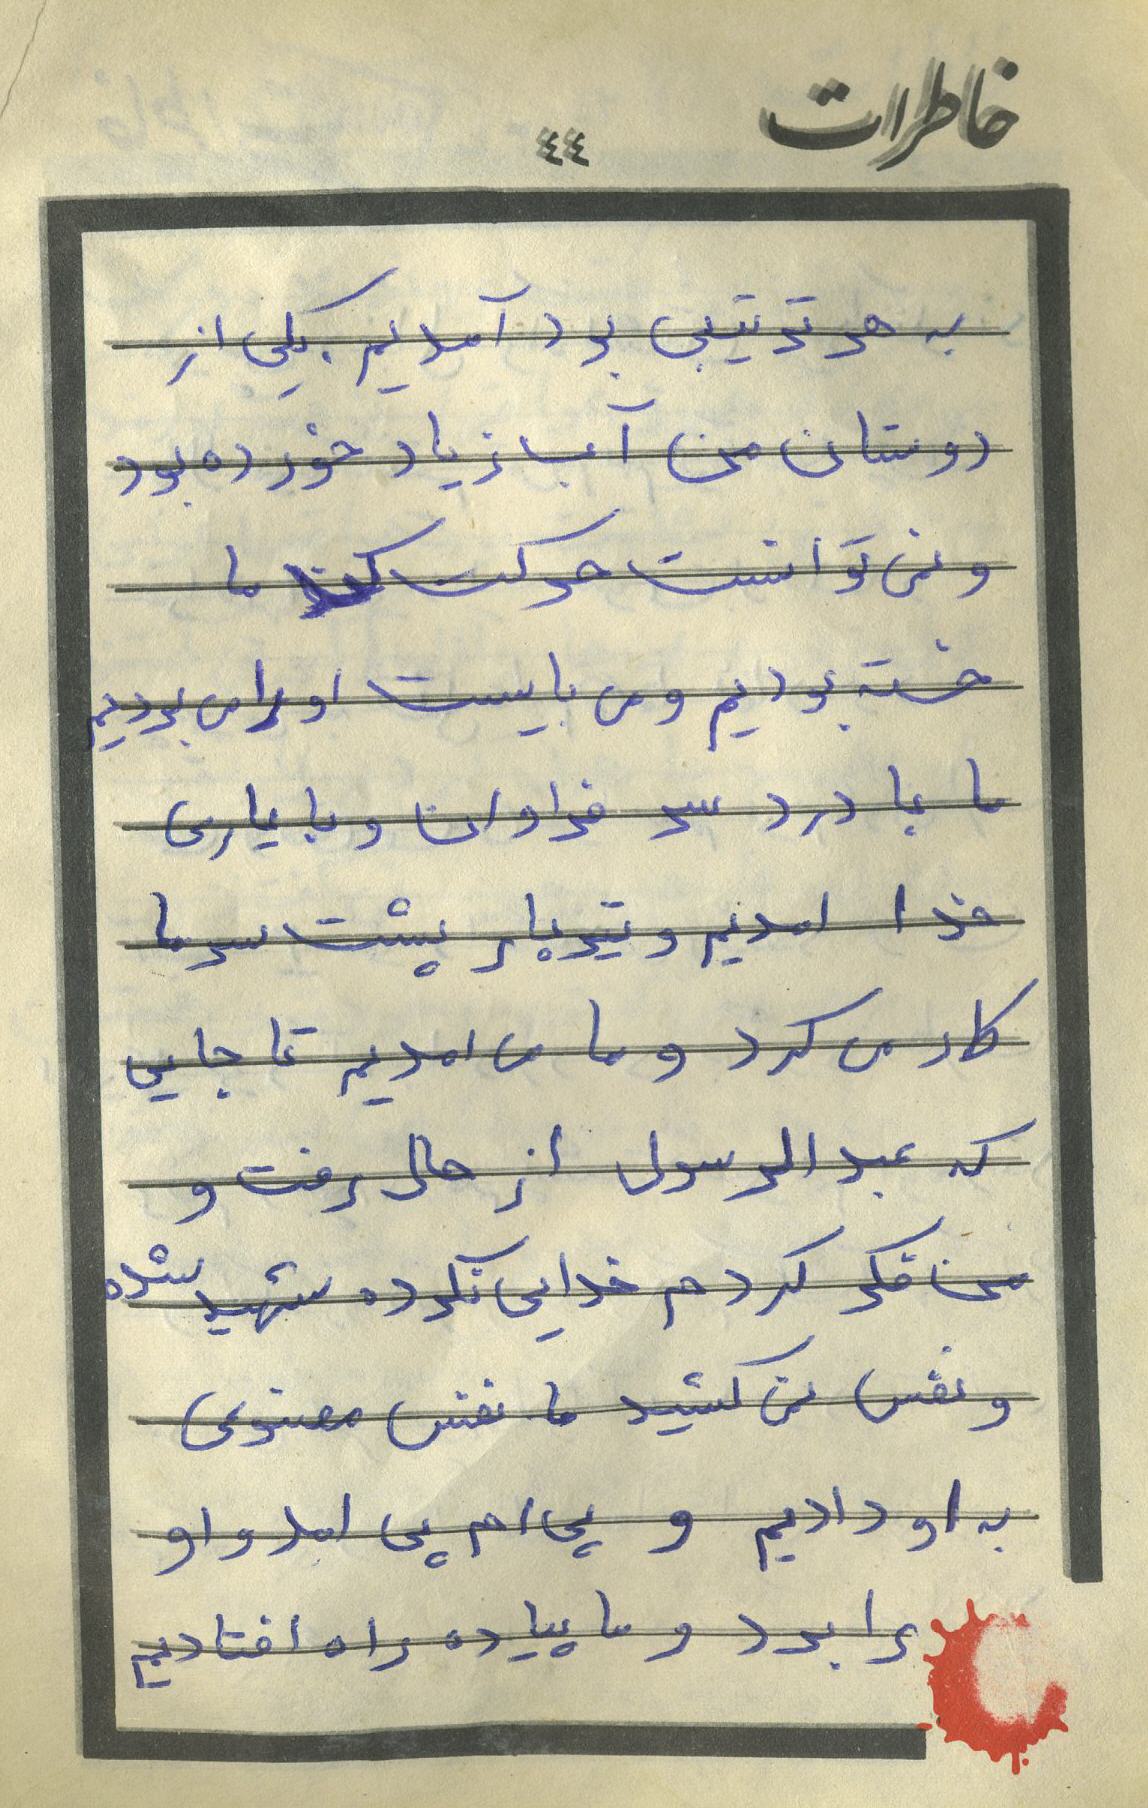 خاطرات
٤٤
به هر ترتیبی بود آمدیم. یکی از
دوستان من آب زیاد خورده بود
و نمی توانست حرکت کند ما
خسته بودیم و می بایست او را می بردیم
ما با درد سر فراوان و با یاری
خدا امدیم و تیربار پشت سر ما
کار می کرد و ما می امدیم تا جایی
که عبدالرسول از حال رفت و
من فکر کردم خدایی نکرده شهید شده
و نفس نمی کشید ما نفس مصنوعی
به او دادیم و پی ام پی امد و او
را برد و ما پیاده راه افتادیم